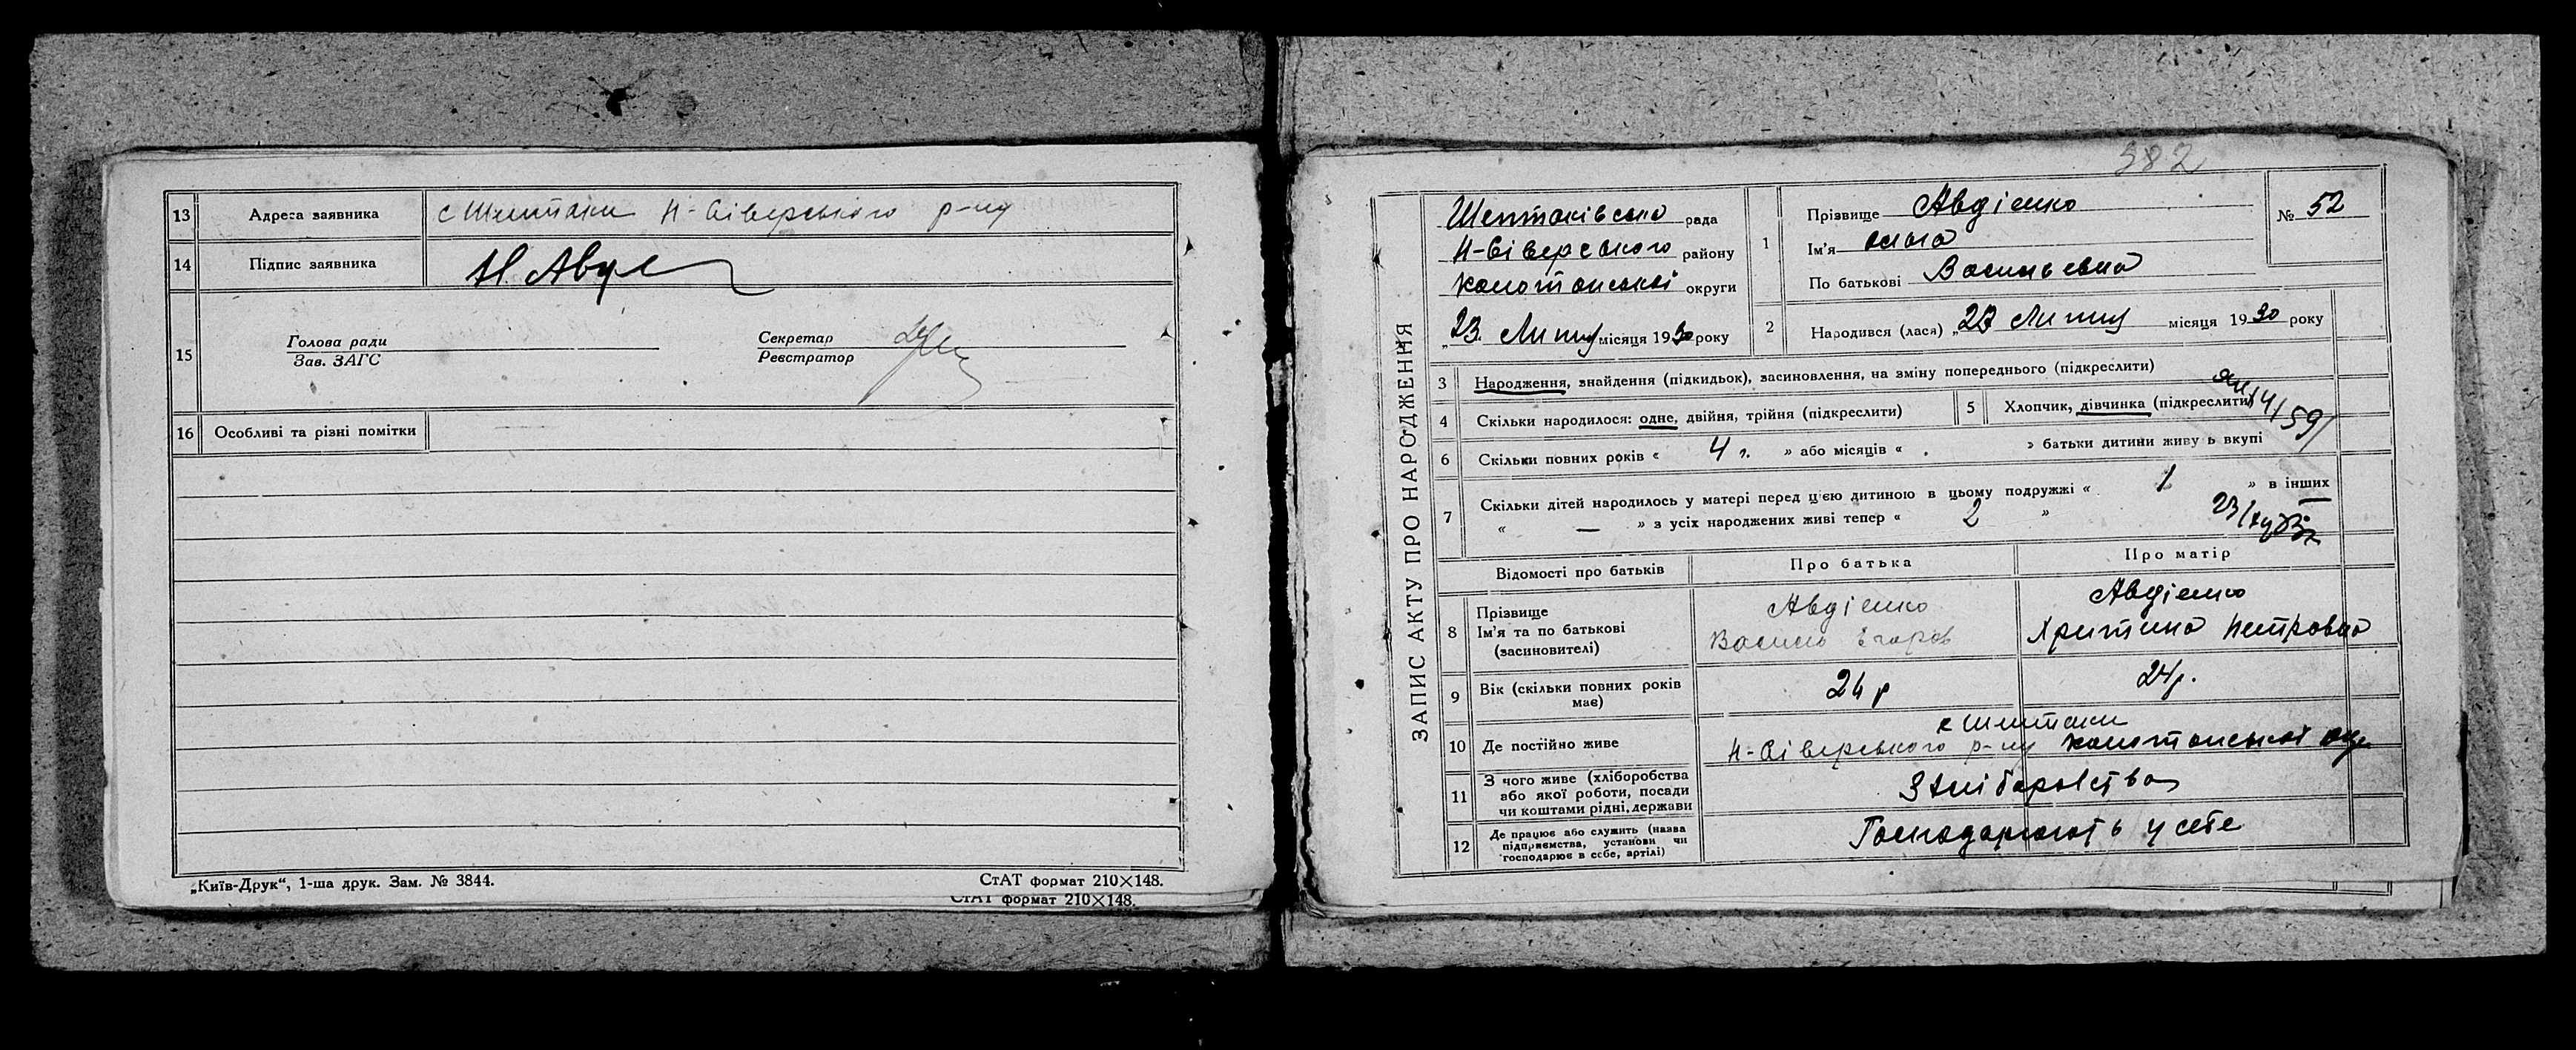 13 Адреса заявника с Шептаки Н-Сіверського р-ну
14 Підпис заявника Н. Авд
15 Голова ради
Зав. ЗАГС
Секретар
Реєстратор
16 Особливі та різні помітки
„Київ-Друк“, 1-ша друк. Зам. № 3844. СтАТ формат 210×148.
СтАТ формат 210×148.
382
ЗАПИС АКТУ ПРО НАРОДЖЕННЯ
Шептаківська рада
Н-Сіверского району
Конотопської округи
„23 Липня місяця 1930 року
1 Прізвище Авдієнко
Ім'я Ольга
По батькові Васильевна
№ 52
2 Народився (лася) „23 Липня місяця 1930 року
3 Народження, знайдення (підкидьок), засиновлення, на зміну попереднього (підкреслити)
4 Скільки народилося: одне, двійня, трійня (підкреслити)
5 Хлопчик, дівчинка (підкреслити)
6 Скільки повних років « 4 г. » або місяців « » батьки дитини живуть вкупі
7 Скільки дітей народилось у матері перед цією дитиною в цьому подружжі « 1 » в інших
« — » з усіх народжених живі тепер « 2 »
Відомості про батьків Про батька Про матір
8 Прізвище
Ім'я та по батькові
(засиновителі)
Авдієнко
Василь Егоров
Авдієнко
Христина Петровна
9 Вік (скільки повних років має) 24 р 24 р.
10 Де постійно живе
с Шептаки
Н-Сіверського р-ну Конотопської окр
11 З чого живе (хліборобства
або якої роботи, посади
чи коштами рідні, держави
З хліборобства
12 Де працює або служить (назва
підприємства, установи чи
господарює в себе, артілі)
Господарюють у себе